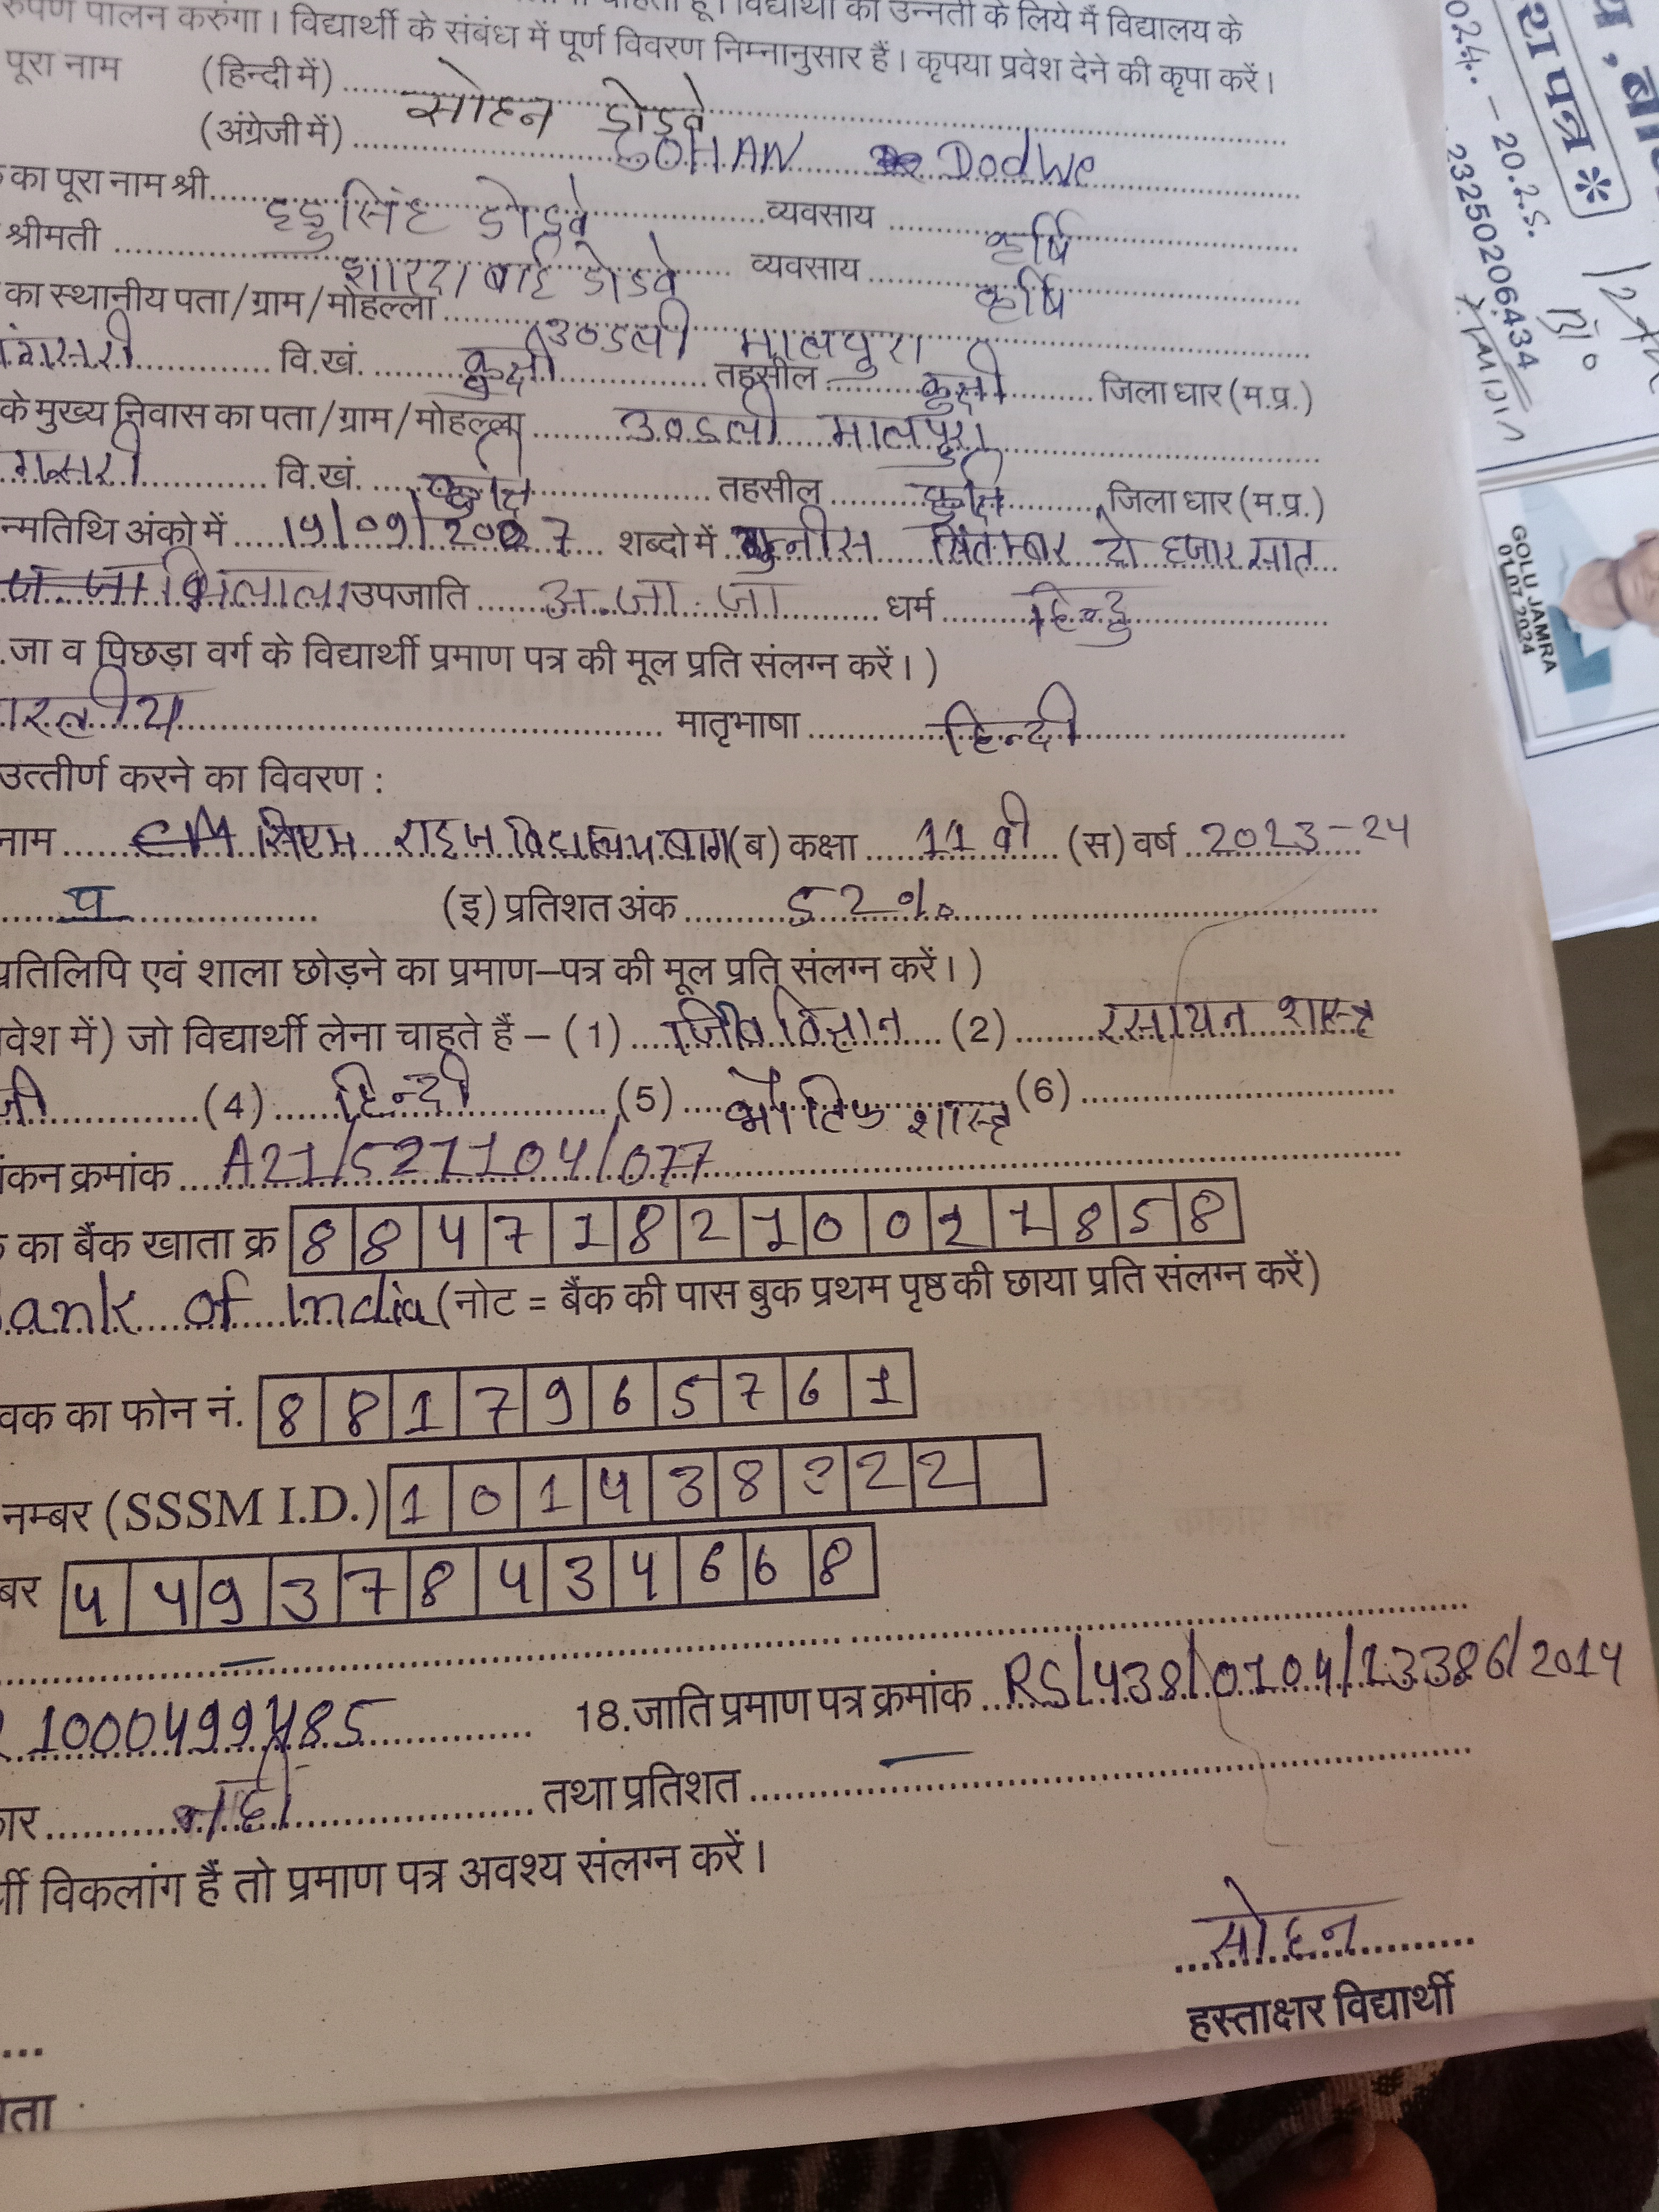 रुपेण पालन करुंगा। विद्यार्थी के संबंध में पूर्ण विवरण निम्नानुसार हैं। कृपया प्रवेश देने की कृपा करें।
पूरा नाम (हिन्दी में) सोहन डोडवे
(अंग्रेजी में) SOHAN Dodwe
का पूरा नाम श्री डोडवे व्यवसाय कृर्षि
श्रीमती शारदा बाई डोडवे व्यवसाय कृर्षि
का स्थानीय पता/ग्राम/मोहल्ला उण्डली मालपुरा
वि.खं. कुक्षी तहसील कुक्षी जिला धार (म.प्र.)
के मुख्य निवास का पता/ग्राम/मोहल्ला उण्डली मालपुरा
वि.खं. कुक्षि तहसील कुक्षि जिला धार (म.प्र.)
न्मतिथि अंको में 19/09/2007 शब्दो में उन्नीस सितम्बर दो हजार सात
भिलाला उपजाति अ.जा.जा धर्म हिन्दु
.जा व पिछड़ा वर्ग के विद्यार्थी प्रमाण पत्र की मूल प्रति संलग्न करें।)
ारतीय मातृभाषा हिन्दी
उत्तीर्ण करने का विवरण :
नाम सिएम राइज विद्यालय बाग (ब) कक्षा 11 वी (स) वर्ष 2023-24
(इ) प्रतिशत अंक 52%
प्रतिलिपि एवं शाला छोड़ने का प्रमाण-पत्र की मूल प्रति संलग्न करें।)
वेश में) जो विद्यार्थी लेना चाहते हैं - (1) जिव विज्ञान (2) रसायन शास्त्र
जी (4) हिन्दी (5) भौतिक शास्त्र (6)
ंकन क्रमांक A21/5271104/077
का बैंक खाता क्र 884718210011858
Bank of India (नोट = बैंक की पास बुक प्रथम पृष्ठ की छाया प्रति संलग्न करें)
वक का फोन नं. 8817965761
नम्बर (SSSM I.D.) 101438222
बर 449378434668
1000499485 18.जाति प्रमाण पत्र क्रमांक RS/438/0104/13386/2014
कार नही तथा प्रतिशत
र्थी विकलांग हैं तो प्रमाण पत्र अवश्य संलग्न करें।
सोहन
हस्ताक्षर विद्यार्थी
ता
श पत्र *
024 - 2025
23250206434
GOLU JAMRA
01.07.2024